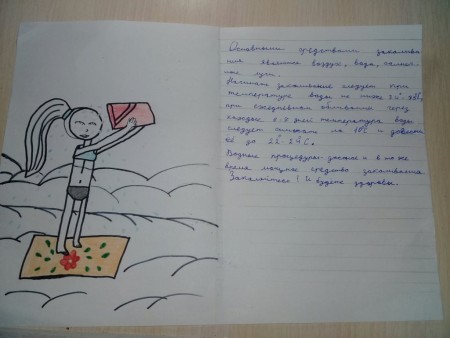 Основными средствами закалива-
ния являются воздух, вода, солнеч-
ные лучи.
Начинать закаливание следует при
температуре воды не ниже
при ежедневном обливание через
каждые дней температура воды
следует снижать на 1°С и довести
её до 22°-24°С.
Водные процедуры закалив в то же
время мощное средство закаливания.
Закаляйтесь! И будете здоровы.